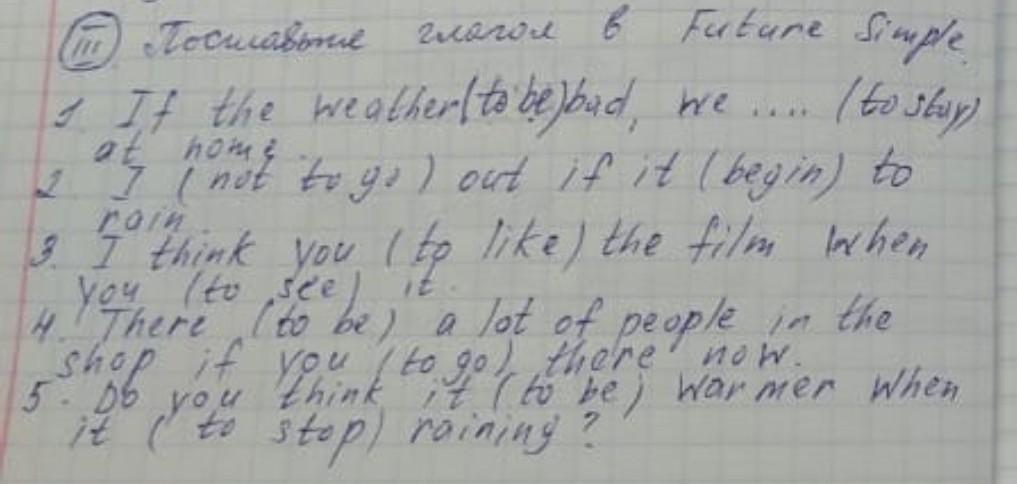 III Поставьте глагол в Future Simple.
1. If the weather (to be) bad, we .... (to stay)
at home.
2. I (not to go) out if it (begin) to
rain.
3. I think you (to like) the film when
you (to see) it.
4. There (to be) a lot of people in the
shop if you (to go) there now.
5. Do you think it (to be) warmer when
it (to stop) raining?